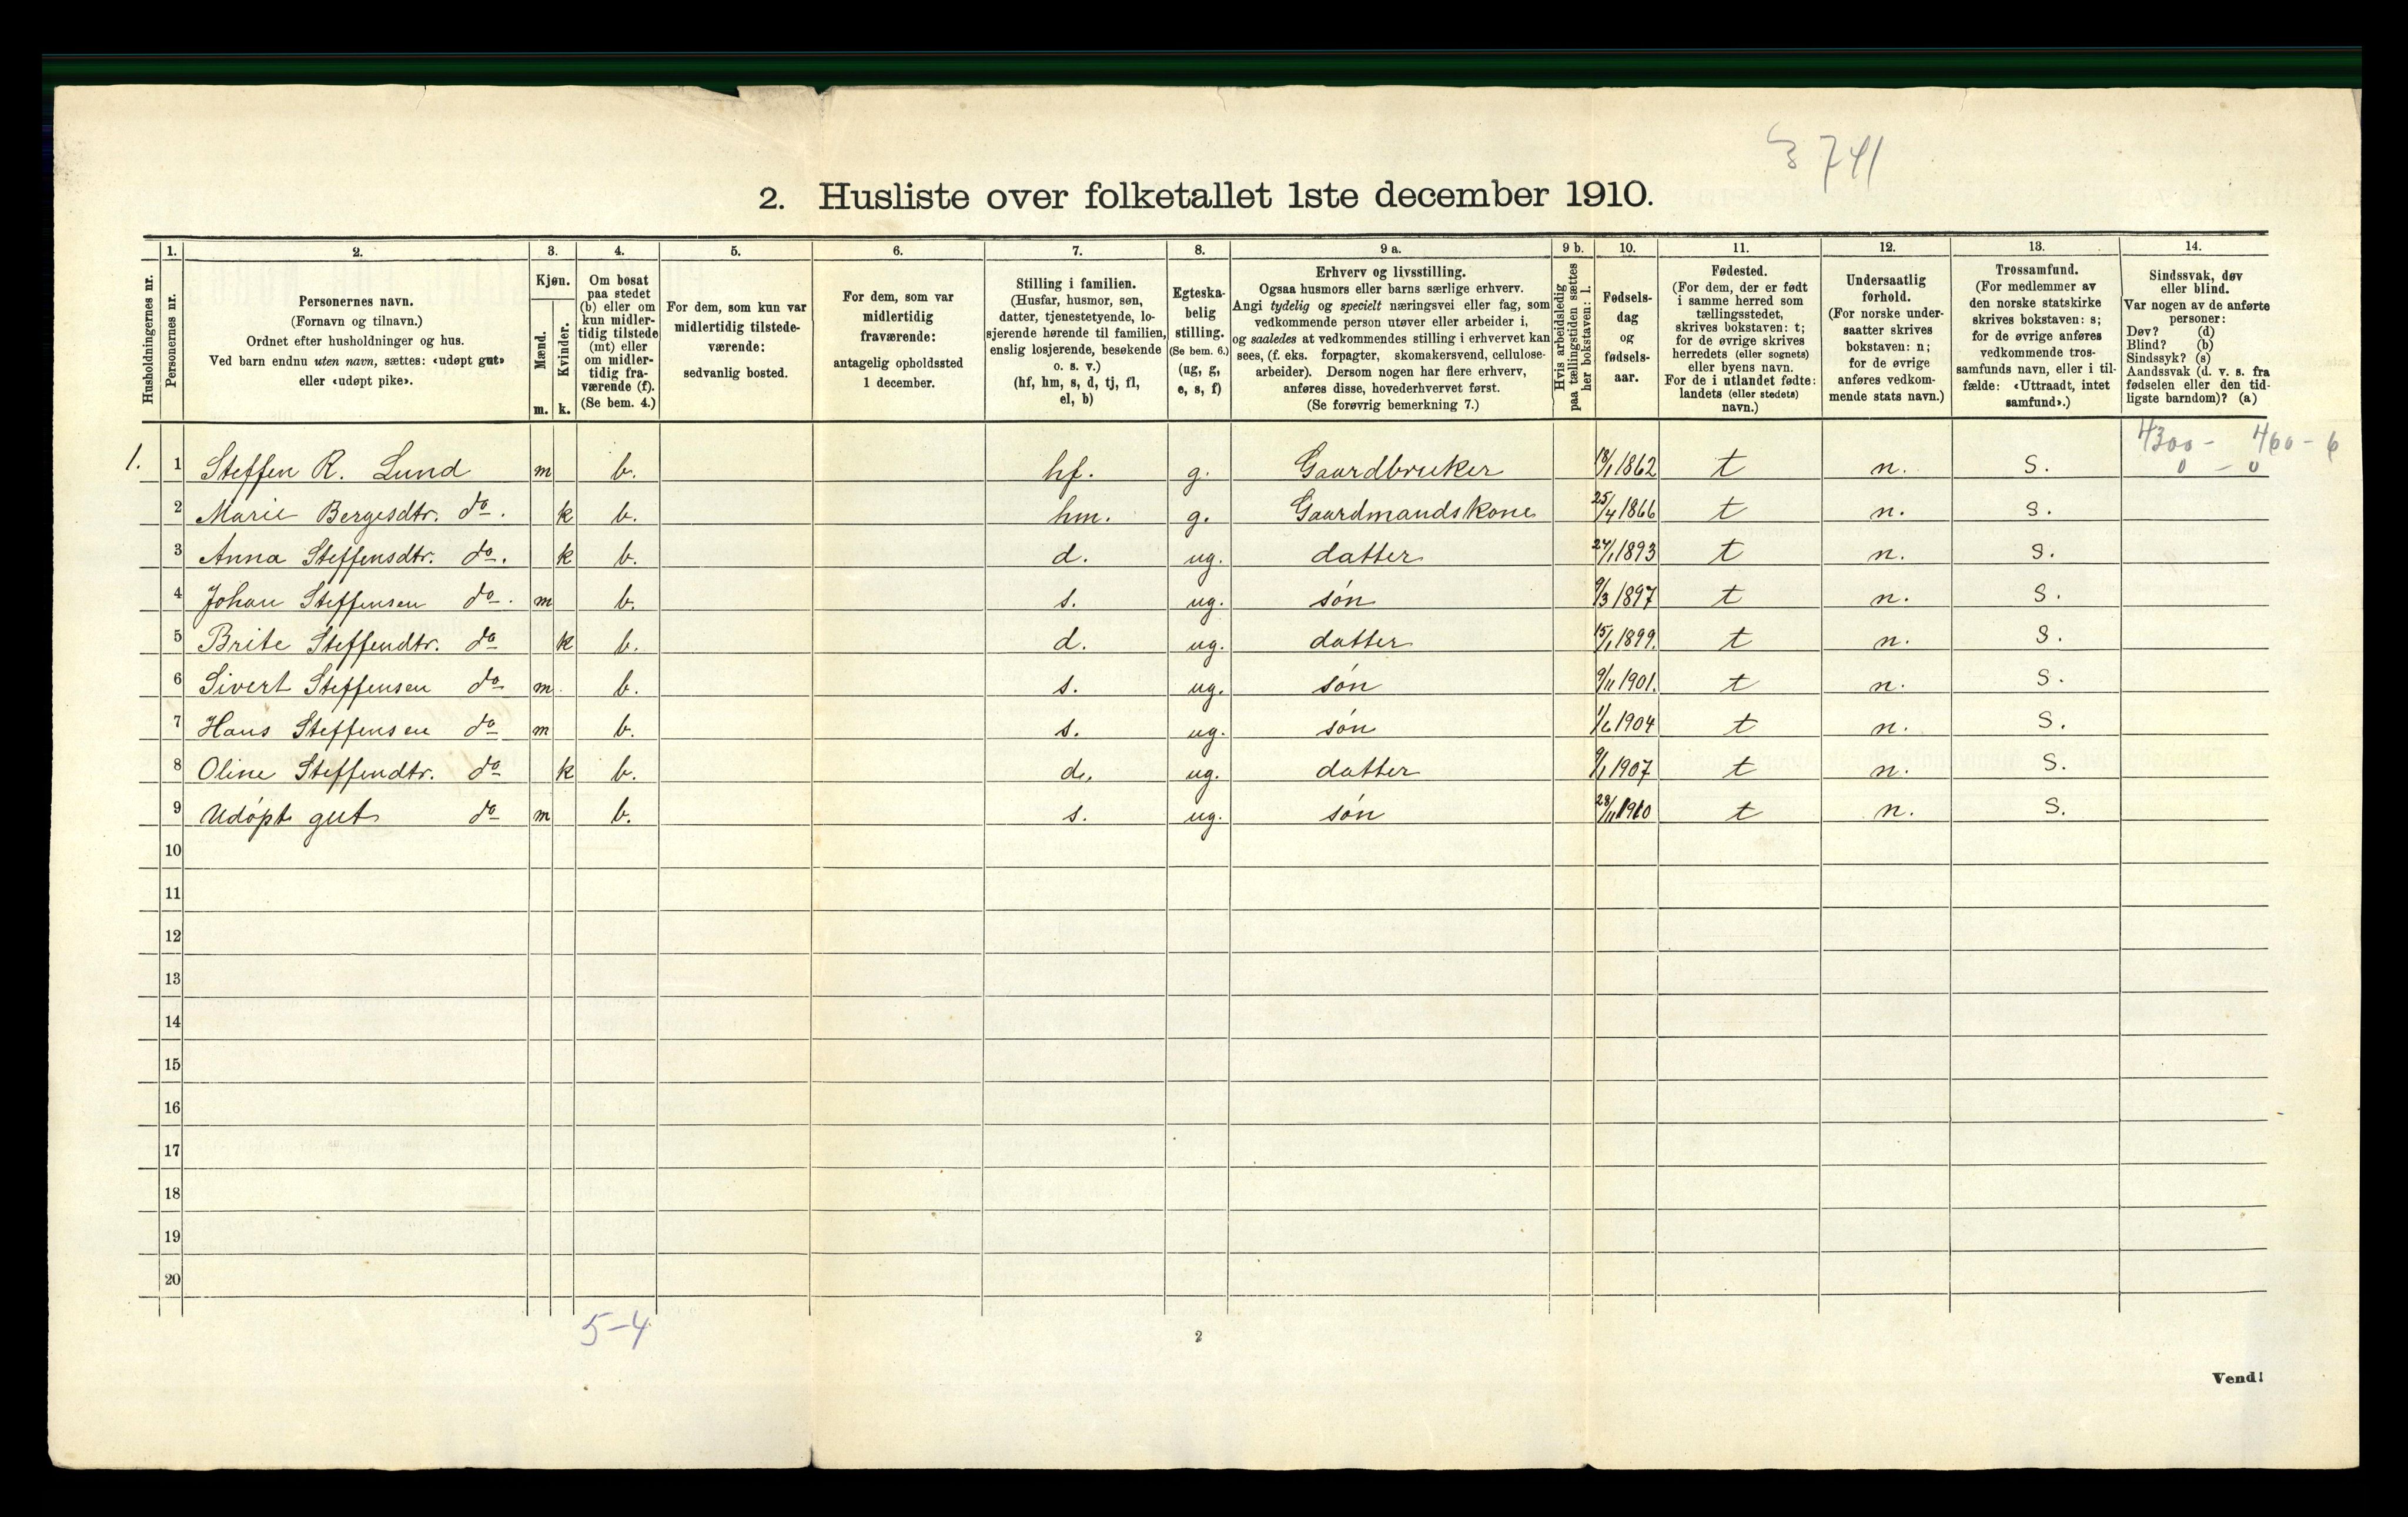 3741
2. Husliste over folketallet 1ste december 1910.
Husholdningernes nr.
1.
Personernes nr.
2.
Personernes navn.
(Fornavn og tilnavn.)
Ordnet efter husholdninger og hus.
Ved barn endnu uten navn, sættes: «udøpt gut»
eller «udøpt pike».
3.
Kjøn.
Mænd.
m.
Kvinder.
k.
4.
Om bosat
paa stedet
(b) eller om
kun midler-
tidig tilstede
(mt) eller
om midler-
tidig fra-
værende (f).
(Se bem. 4.)
5.
For dem, som kun var
midlertidig tilstede-
værende:
sedvanlig bosted.
6.
For dem, som var
midlertidig
fraværende:
antagelig opholdssted
1 december.
7.
Stilling i familien.
(Husfar, husmor, søn,
datter, tjenestetyende, lo-
sjerende hørende til familien,
enslig losjerende, besøkende
o. s. v.)
(hf, hm, s, d, tj, fl,
el, b)
8.
Egteska-
belig
stilling.
(Se bem. 6.)
(ug, g,
e, s, f)
9 a.
Erhverv og livsstilling.
Ogsaa husmors eller barns særlige erhverv.
Angi tydelig og specielt næringsvei eller fag, som
vedkommende person utøver eller arbeider i,
og saaledes at vedkommendes stilling i erhvervet kan
sees, (f. eks. forpagter, skomakersvend, cellulose-
arbeider). Dersom nogen har flere erhverv,
anføres disse, hovederhvervet først.
(Se forøvrig bemerkning 7.)
9 b.
Hvis arbeidsledig
paa tællingstiden sættes
her bokstaven: l.
10.
Fødsels-
dag
og
fødsels-
aar.
11.
Fødested.
(For dem, der er født
i samme herred som
tællingsstedet,
skrives bokstaven: t;
for de øvrige skrives
herredets (eller sognets)
eller byens navn.
For de i utlandet fødte:
landets (eller stedets)
navn.)
12.
Undersaatlig
forhold.
(For norske under-
saatter skrives
bokstaven: n;
for de øvrige
anføres vedkom-
mende stats navn.)
13.
Trossamfund.
(For medlemmer av
den norske statskirke
skrives bokstaven: s;
for de øvrige anføres
vedkommende tros-
samfunds navn, eller i til-
fælde: «Uttraadt, intet
samfund».)
14.
Sindssvak, døv
eller blind.
Var nogen av de anførte
personer:
Døv? (d)
Blind? (b)
Sindssyk? (s)
Aandssvak (d. v. s. fra
fødselen eller den tid-
ligste barndom)? (a)
4300 - 460 - 6
0 - 0
1. 1 Steffen R. Lund m b. hf. g. Gaardbruker 18/1 1862 t n. s.
2 Marie Bergesdtr. do. k b. hm. g. Gaardmandskone 25/4 1866 t n. s.
3 Anna Steffensdtr. do. k b. d. ug. datter 24/1 1893 t n. s.
4 Johan Steffensen do. m b. s. ug. søn 9/3 1897 t n. s.
5 Brite Steffendtr. do k b. d. ug. datter 15/1 1899. t n. s.
6 Sivert Steffensen do m. b. s. ug. søn 9/11 1901. t n. s.
7 Hans Steffensen do m b. s. ug. søn 1/6 1904 t n. s.
8 Oline Steffendtr. do k b. d. ug. datter 9/1 1907 t n. s.
9 Udøpt gut do m b. s. ug. søn 28/11 1910 t n. s.
10
11
12
13
14
15
16
17
18
19
20
5-4
2
Vend!